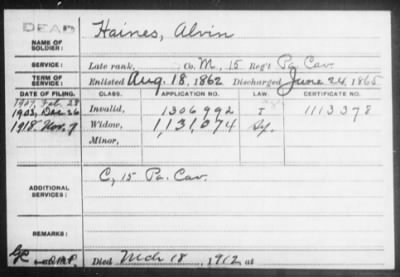 DEAD
NAME OF SOLDIER: Haines, Alvin
SERVICE: Late rank, Co. M, 15 Reg't Pa. Cav.
TERM OF SERVICE: Enlisted Aug. 18, 1862 Discharged June 24, 1865
DATE OF FILING. CLASS. APPLICATION NO. LAW. CERTIFICATE NO.
1907, Feb. 28
1903, Dec 26 Invalid, 1306992 I 1113378
1918. Nov. 9 Widow, 1,131,074
Minor,
ADDITIONAL SERVICES: C, 15 Pa. Cav.
REMARKS:
Died Mch 18, 1912 at